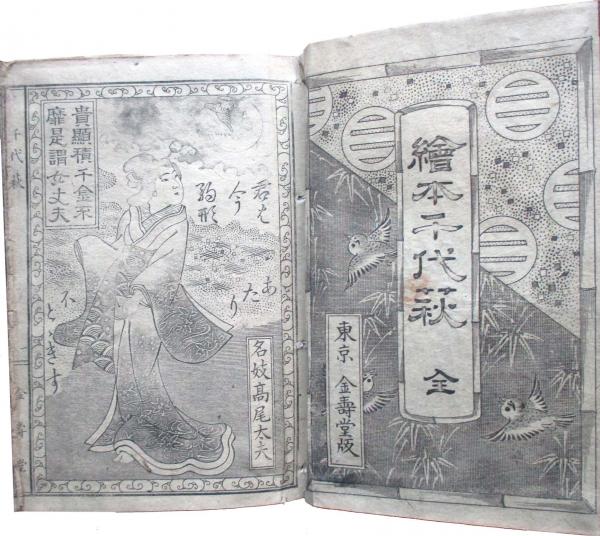 繪本千代萩 全
東京 金壽堂版
貴顯積千金不
靡是謂女丈夫
君は
今
駒形
あたり
不とゝきす
名妓高尾太夫
千代萩
金壽堂